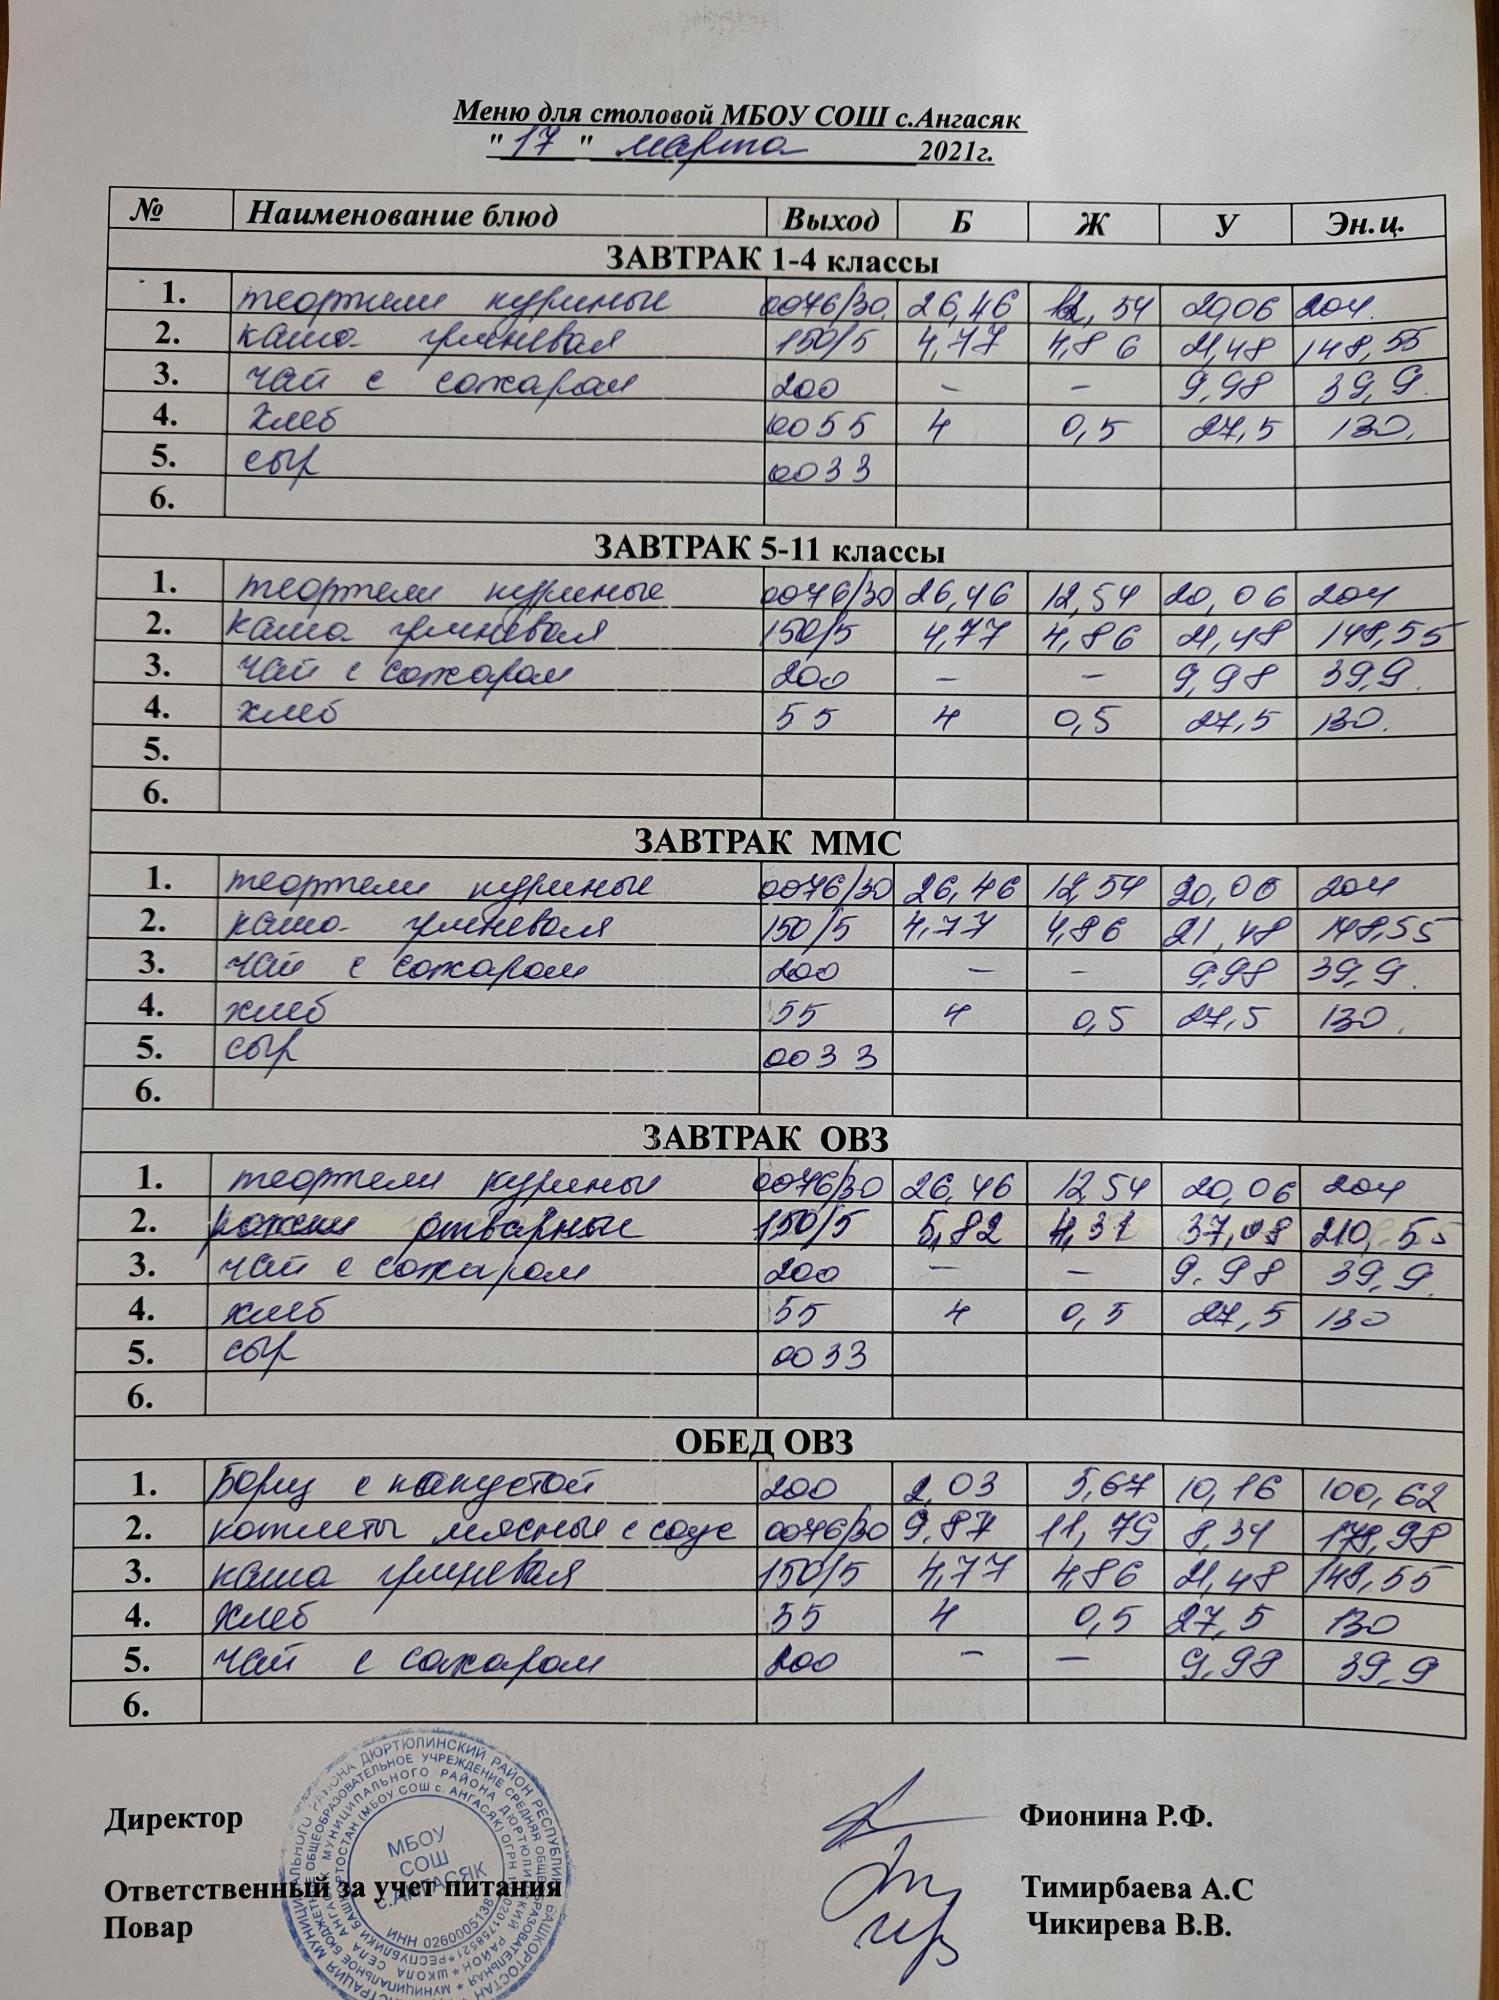 Меню для столовой МБОУ СОШ с.Ангасяк
"17" марта 2021г.
№ Наименование блюд Выход Б Ж У Эн.ц.
ЗАВТРАК 1-4 классы
1. тефтели куриные 0076/30 26,46 12,54 20,06 204.
2. каша гречневая 150/5 4,77 4,86 21,48 148,55
3. чай с сахаром 200 – – 9,98 39,9.
4. хлеб 0055 4 0,5 27,5 130.
5. сыр 0033
6.
ЗАВТРАК 5-11 классы
1. тефтели куриные 0076/30 26,46 12,54 20,06 204
2. каша гречневая 150/5 4,77 4,86 21,48 148,55
3. чай с сахаром 200 – – 9,98 39,9.
4. хлеб 55 4 0,5 27,5 130.
5.
6.
ЗАВТРАК ММС
1. тефтели куриные 0076/30 26,46 12,54 20,06 204
2. каша гречневая 150/5 4,77 4,86 21,48 148,55
3. чай с сахаром 200 – – 9,98 39,9.
4. хлеб 55 4 0,5 27,5 130.
5. сыр 0033
6.
ЗАВТРАК ОВЗ
1. тефтели куриные 0076/30 26,46 12,54 20,06 204
2. рожки отварные 150/5 5,82 4,31 37,08 210,55
3. чай с сахаром 200 – – 9.98 39,9.
4. хлеб 55 4 0,5 27,5 130
5. сыр 0033
6.
ОБЕД ОВЗ
1. Борщ с капустой 200 2,03 5,67 10,16 100,62
2. котлеты мясные с соус 0076/30 9,87 11,79 8,34 178,98
3. каша гречневая 150/5 4,77 4,86 21,48 148,55
4. хлеб 55 4 0,5 27,5 130
5. чай с сахаром 200 – – 9,98 39,9
6.
Директор Фионина Р.Ф.
Ответственный за учет питания Тимирбаева А.С
Повар Чикирева В.В.
МБОУ
СОШ
с.АНГАСЯК
ИНН 0260005138